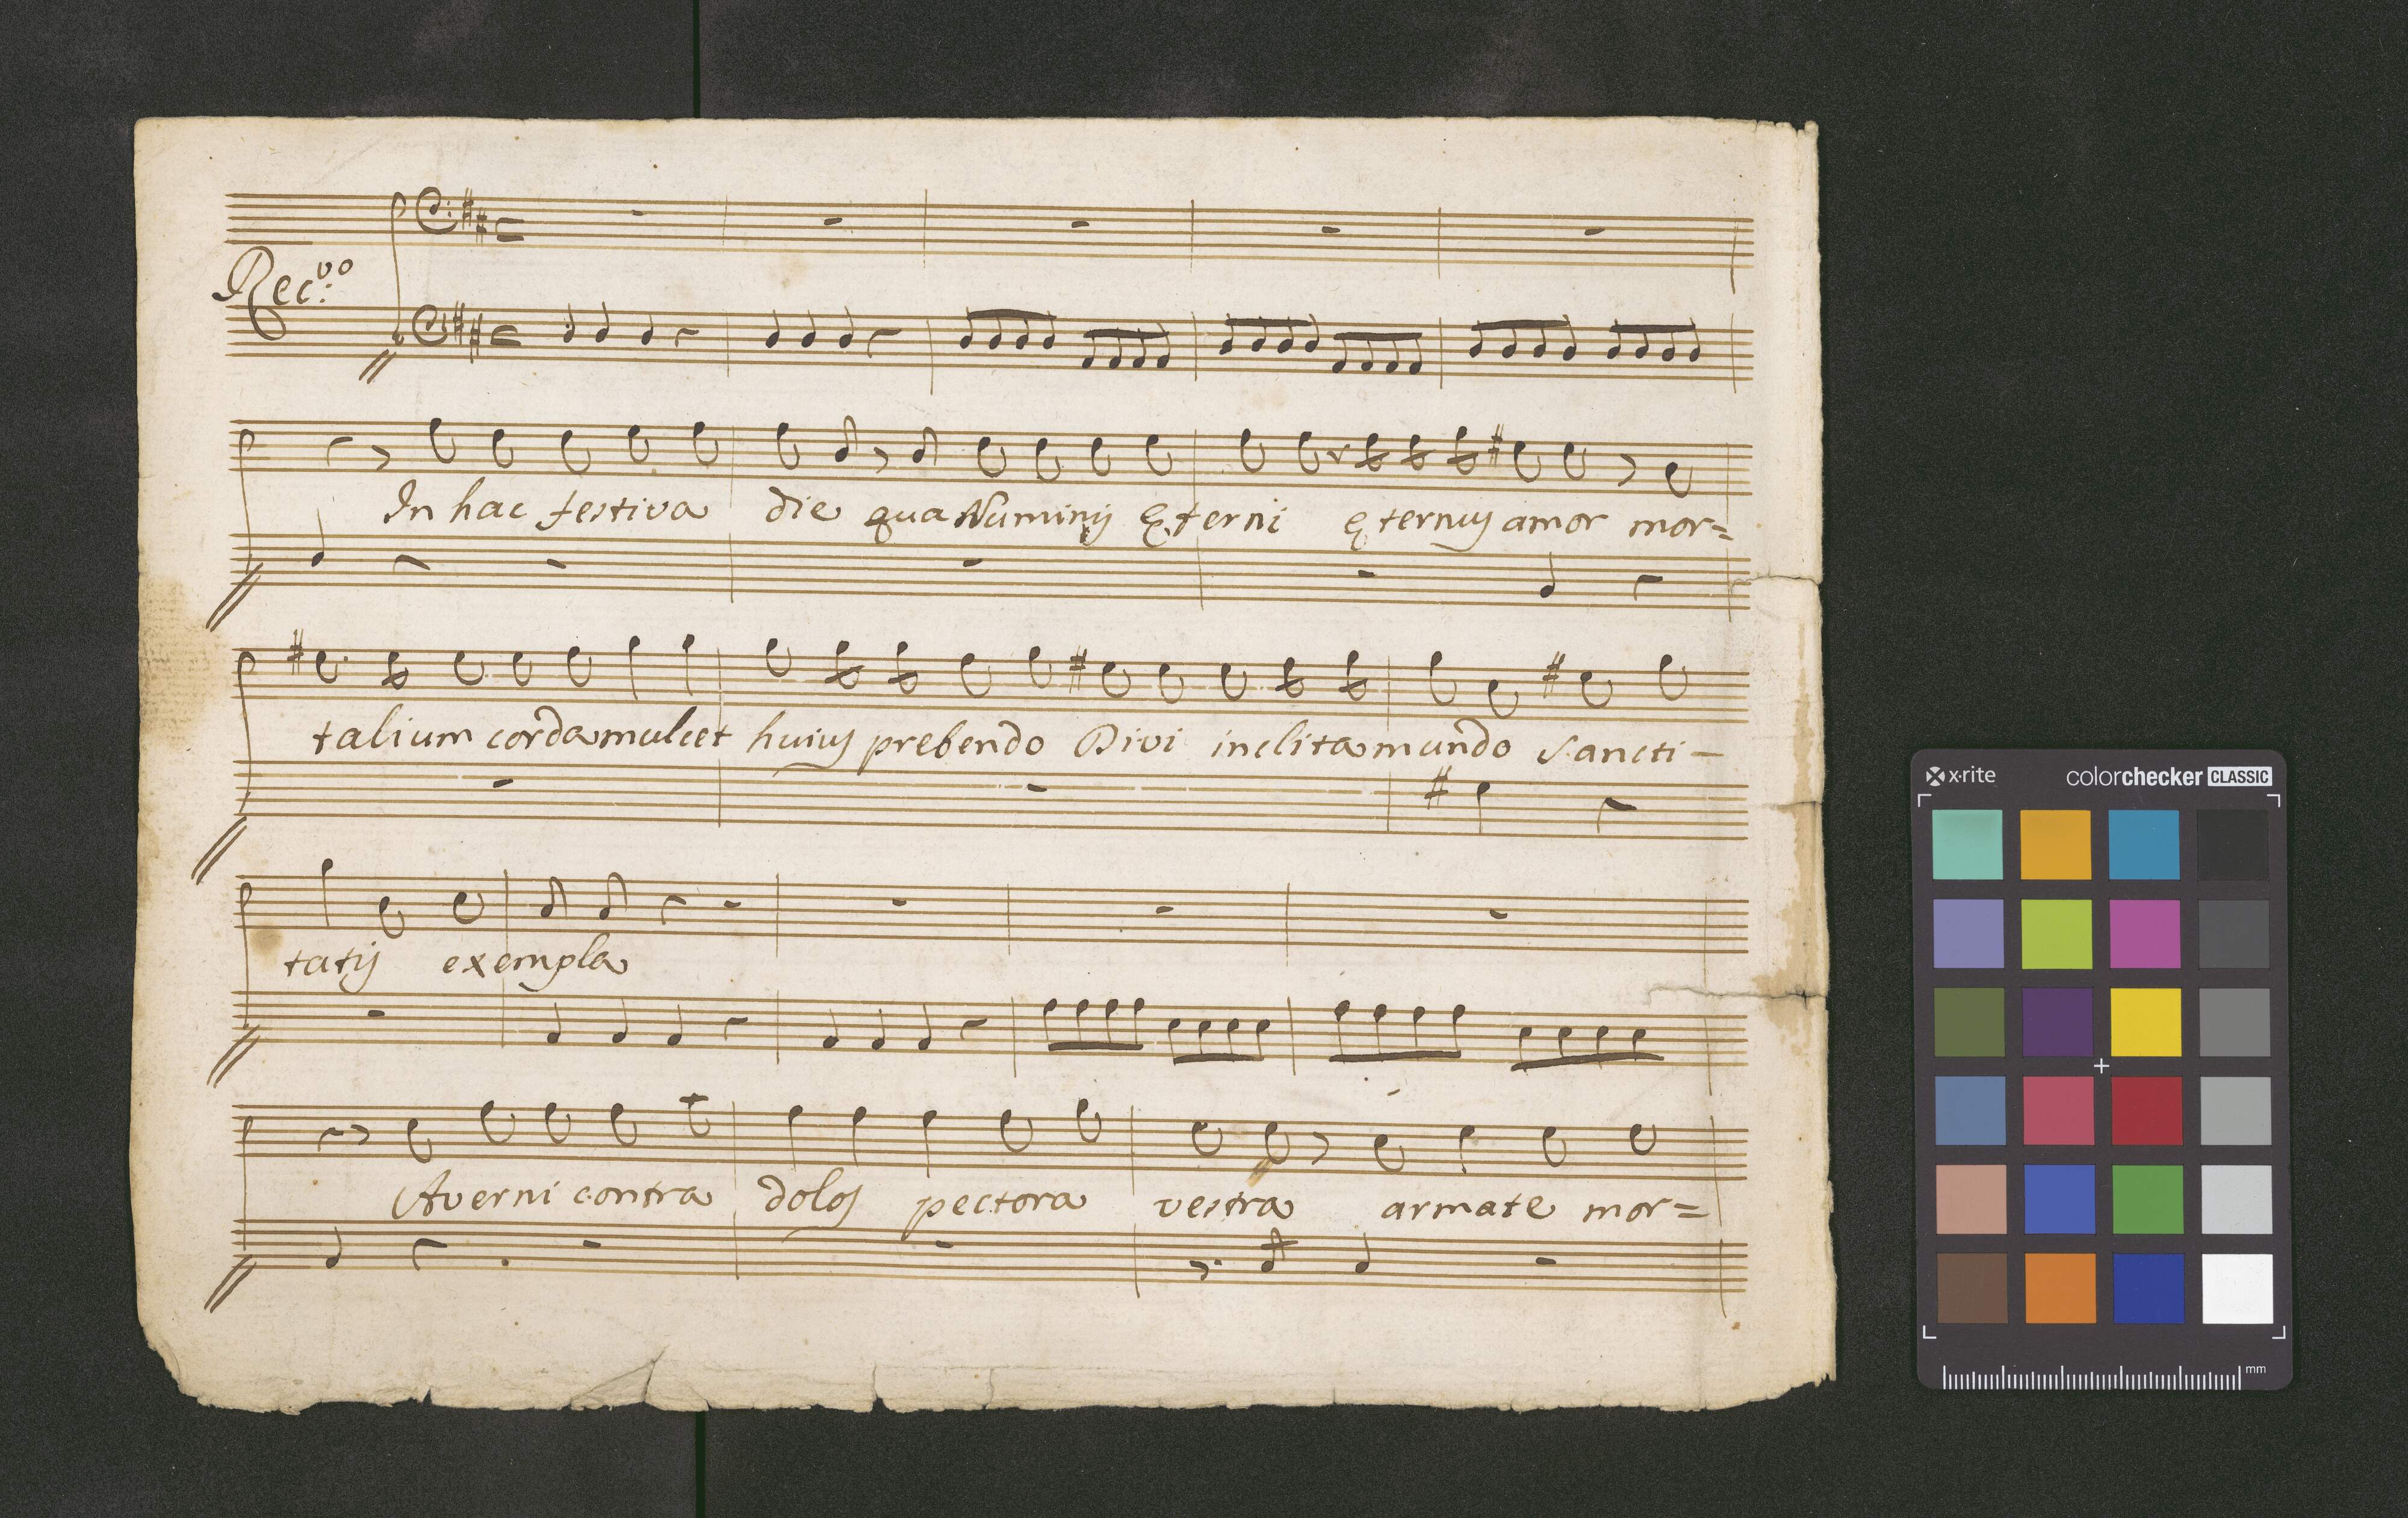 Rec.vo
In hac festiva die qua Numinis ęterni ęternus amor mor=
talium corda mulcet huius prebendo Divi inclita mundo Sancti-
tatis exempla
Averni contra dolos pectora vestra armate mor=
x·rite colorchecker CLASSIC
mm